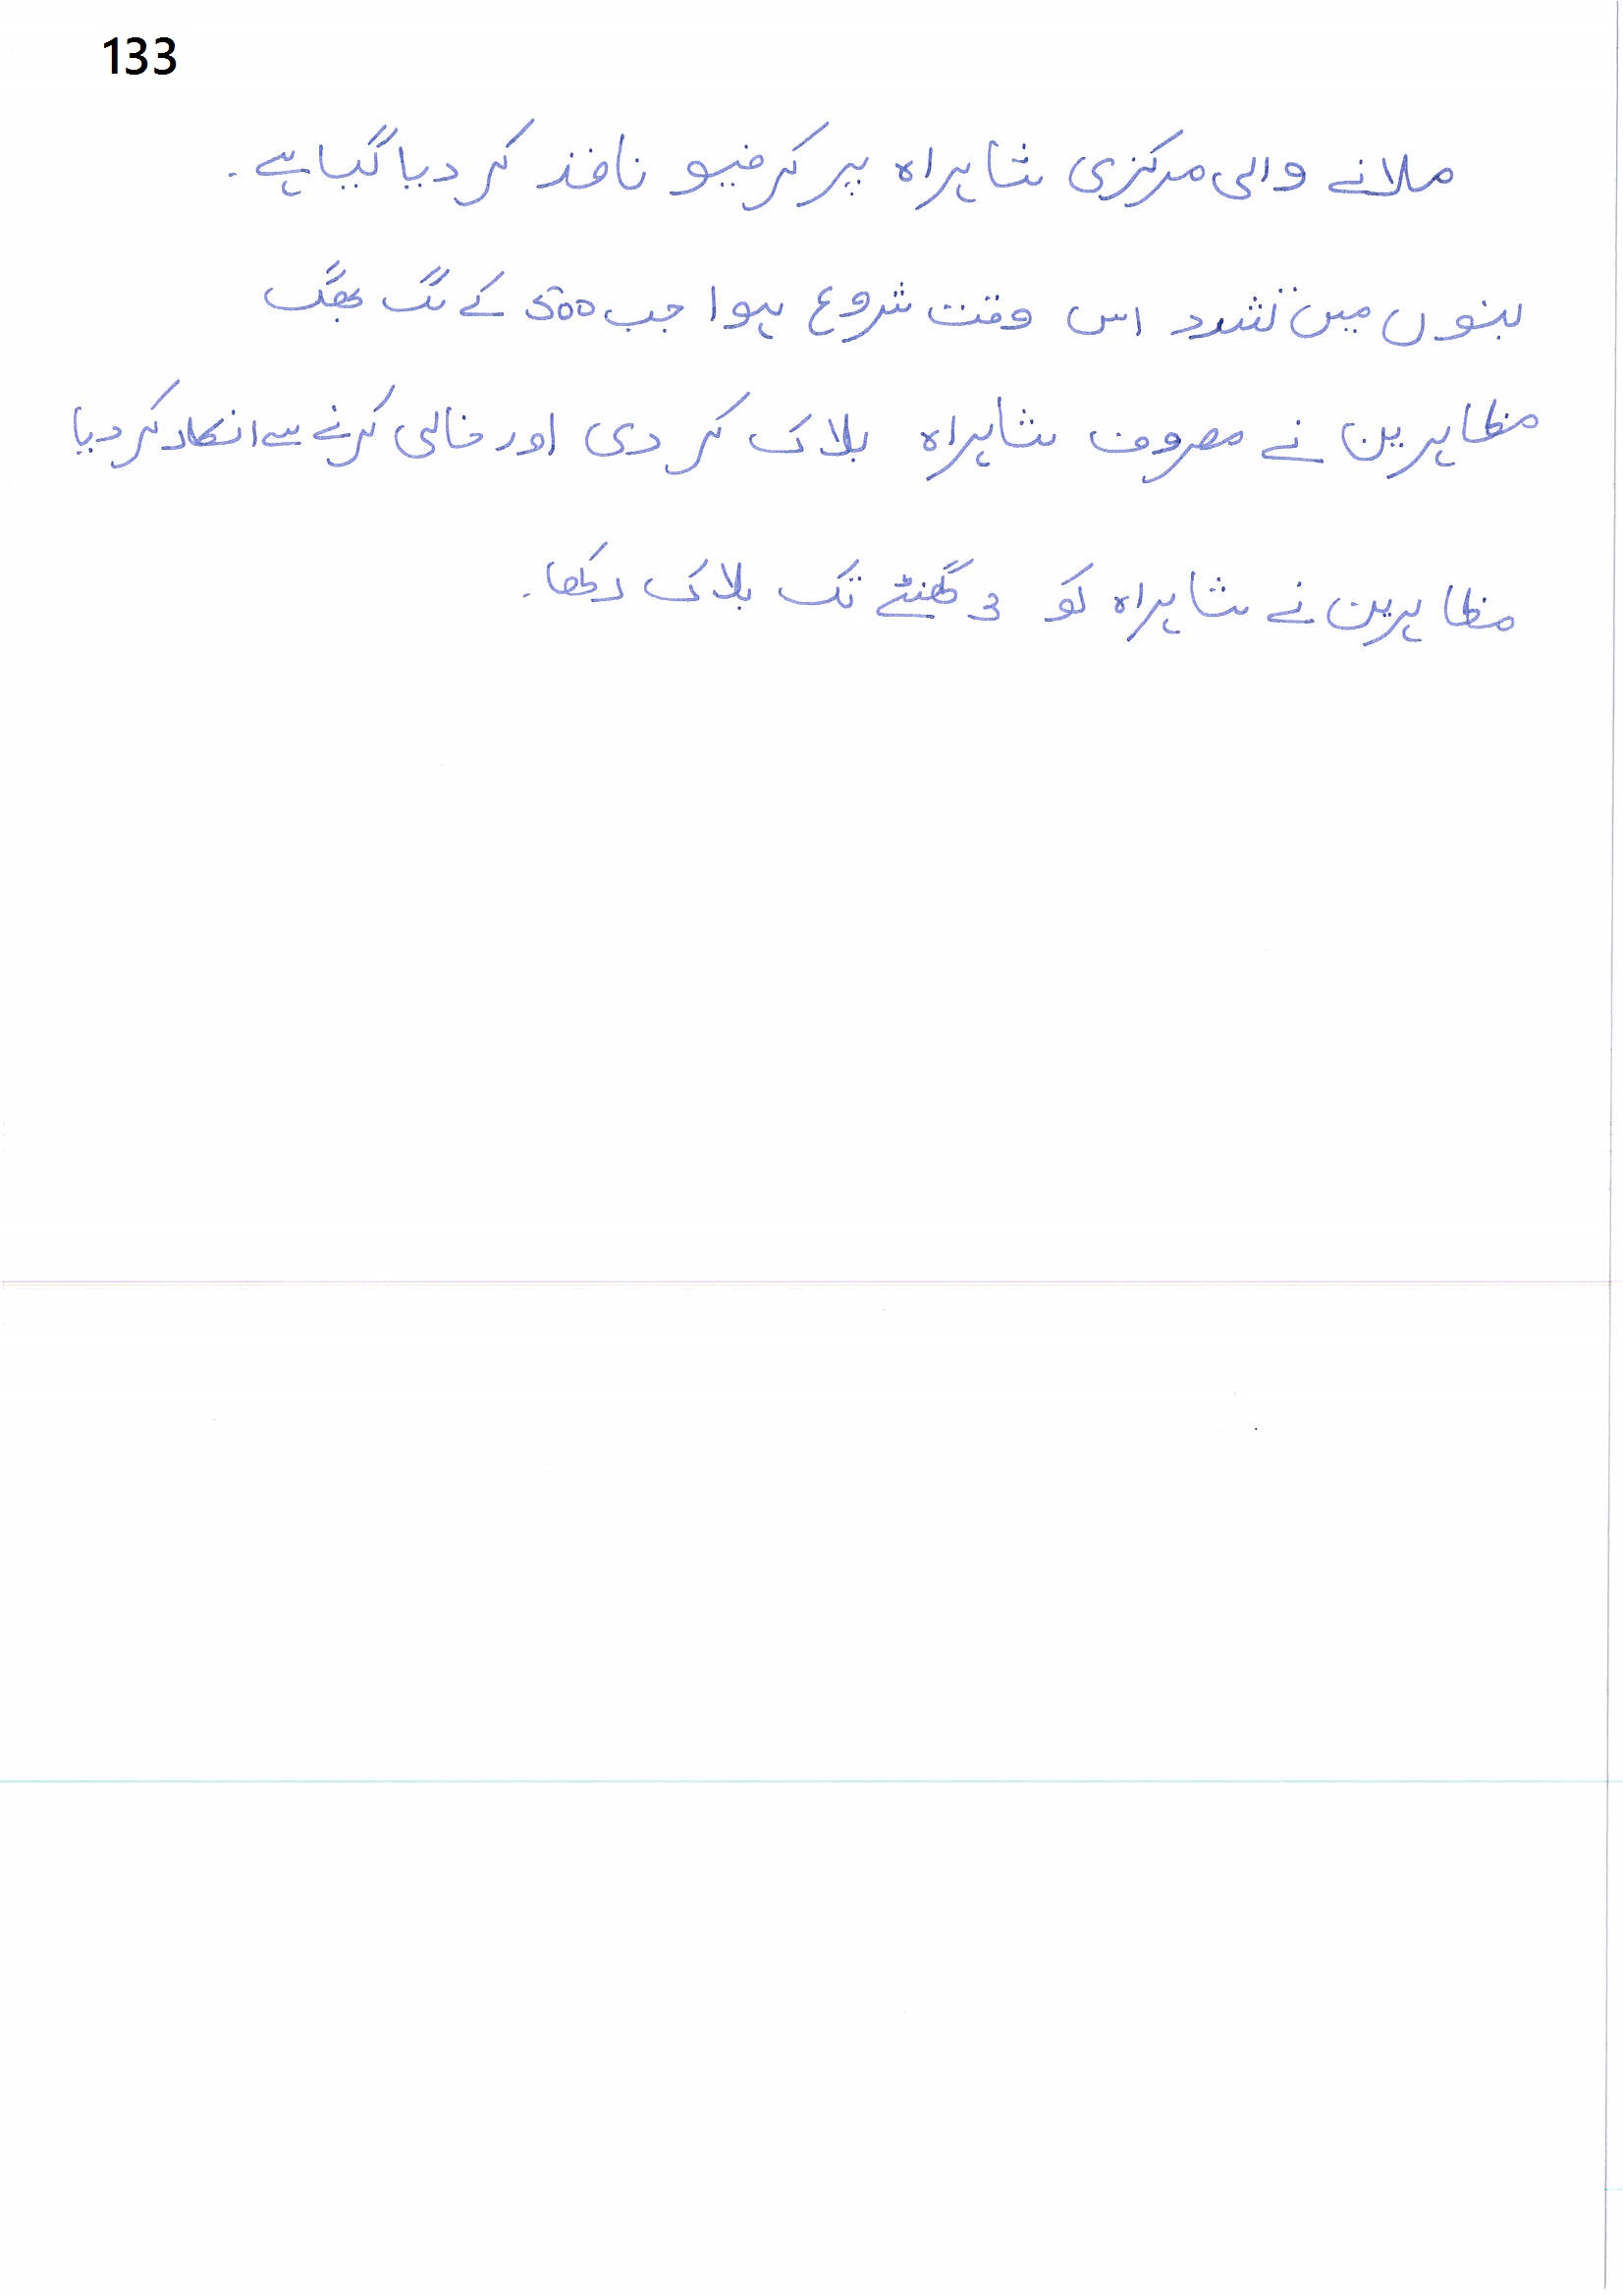 133
ملانے والی مرکزی شاہراہ پر کرفیو نافذ کر دیا گیا ہے۔
بنوں میں تشدد اس وقت شروع ہوا جب 500 کے لگ بھگ
مظاہرین نے مصروف شاہراہ بلاک کر دی اور خالی کرنے سے انکار کر دیا
مظاہرین نے شاہراہ کو 3 گھنٹے تک بلاک رکھا۔